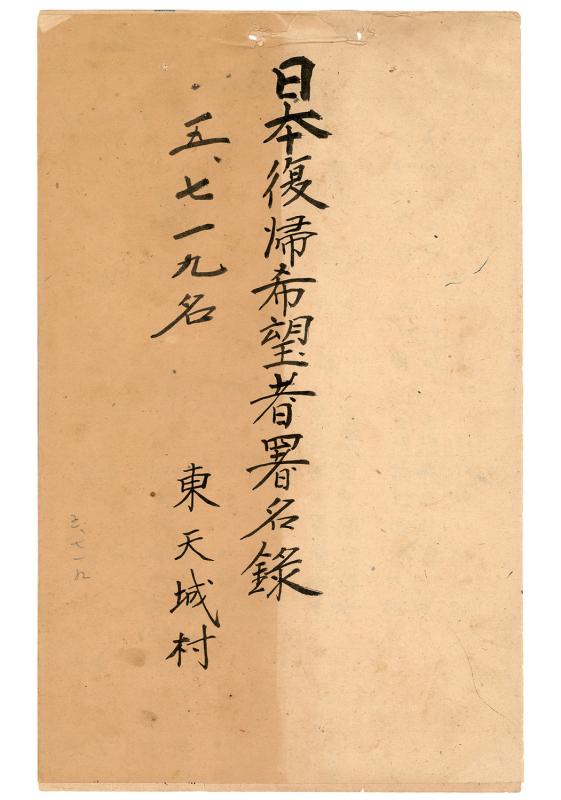 日本復帰希望者署名錄
五、七一九名
東天城村
五、七一九